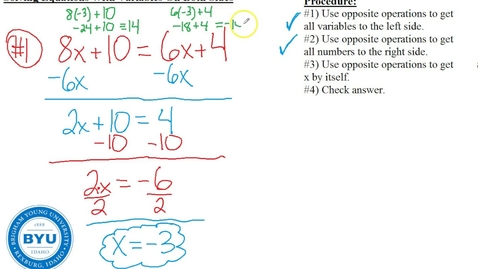 Solving Equations with Variables on Both Sides
8(-3)+10 6(-3)+4
-24+10=14 -18+4=-14
#1 8x+10=6x+4
-6x -6x
2x+10=4
-10 -10
2x/2=-6/2
x=-3
BRIGHAM YOUNG UNIVERSITY
BYU
IDAHO
REXBURG, IDAHO
Procedure:
✓ #1) Use opposite operations to get
all variables to the left side.
✓ #2) Use opposite operations to get
all numbers to the right side.
#3) Use opposite operations to get
x by itself.
#4) Check answer.